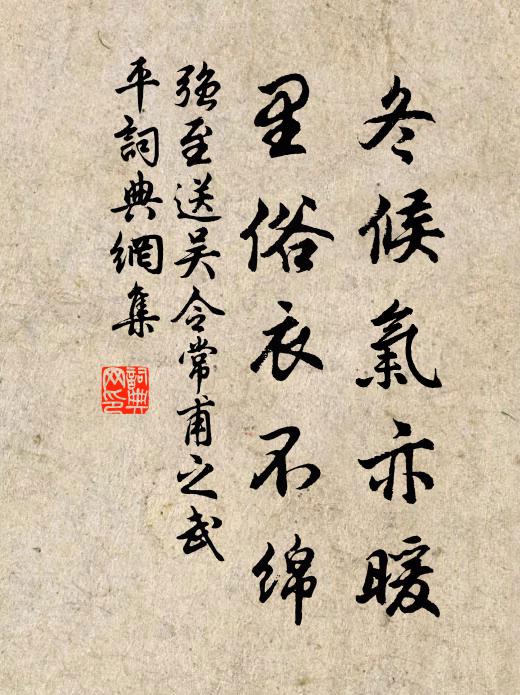 冬候氣亦暖
里俗衣不绵
强至送吴令常甫之武
平詞典網集
詞典
网印